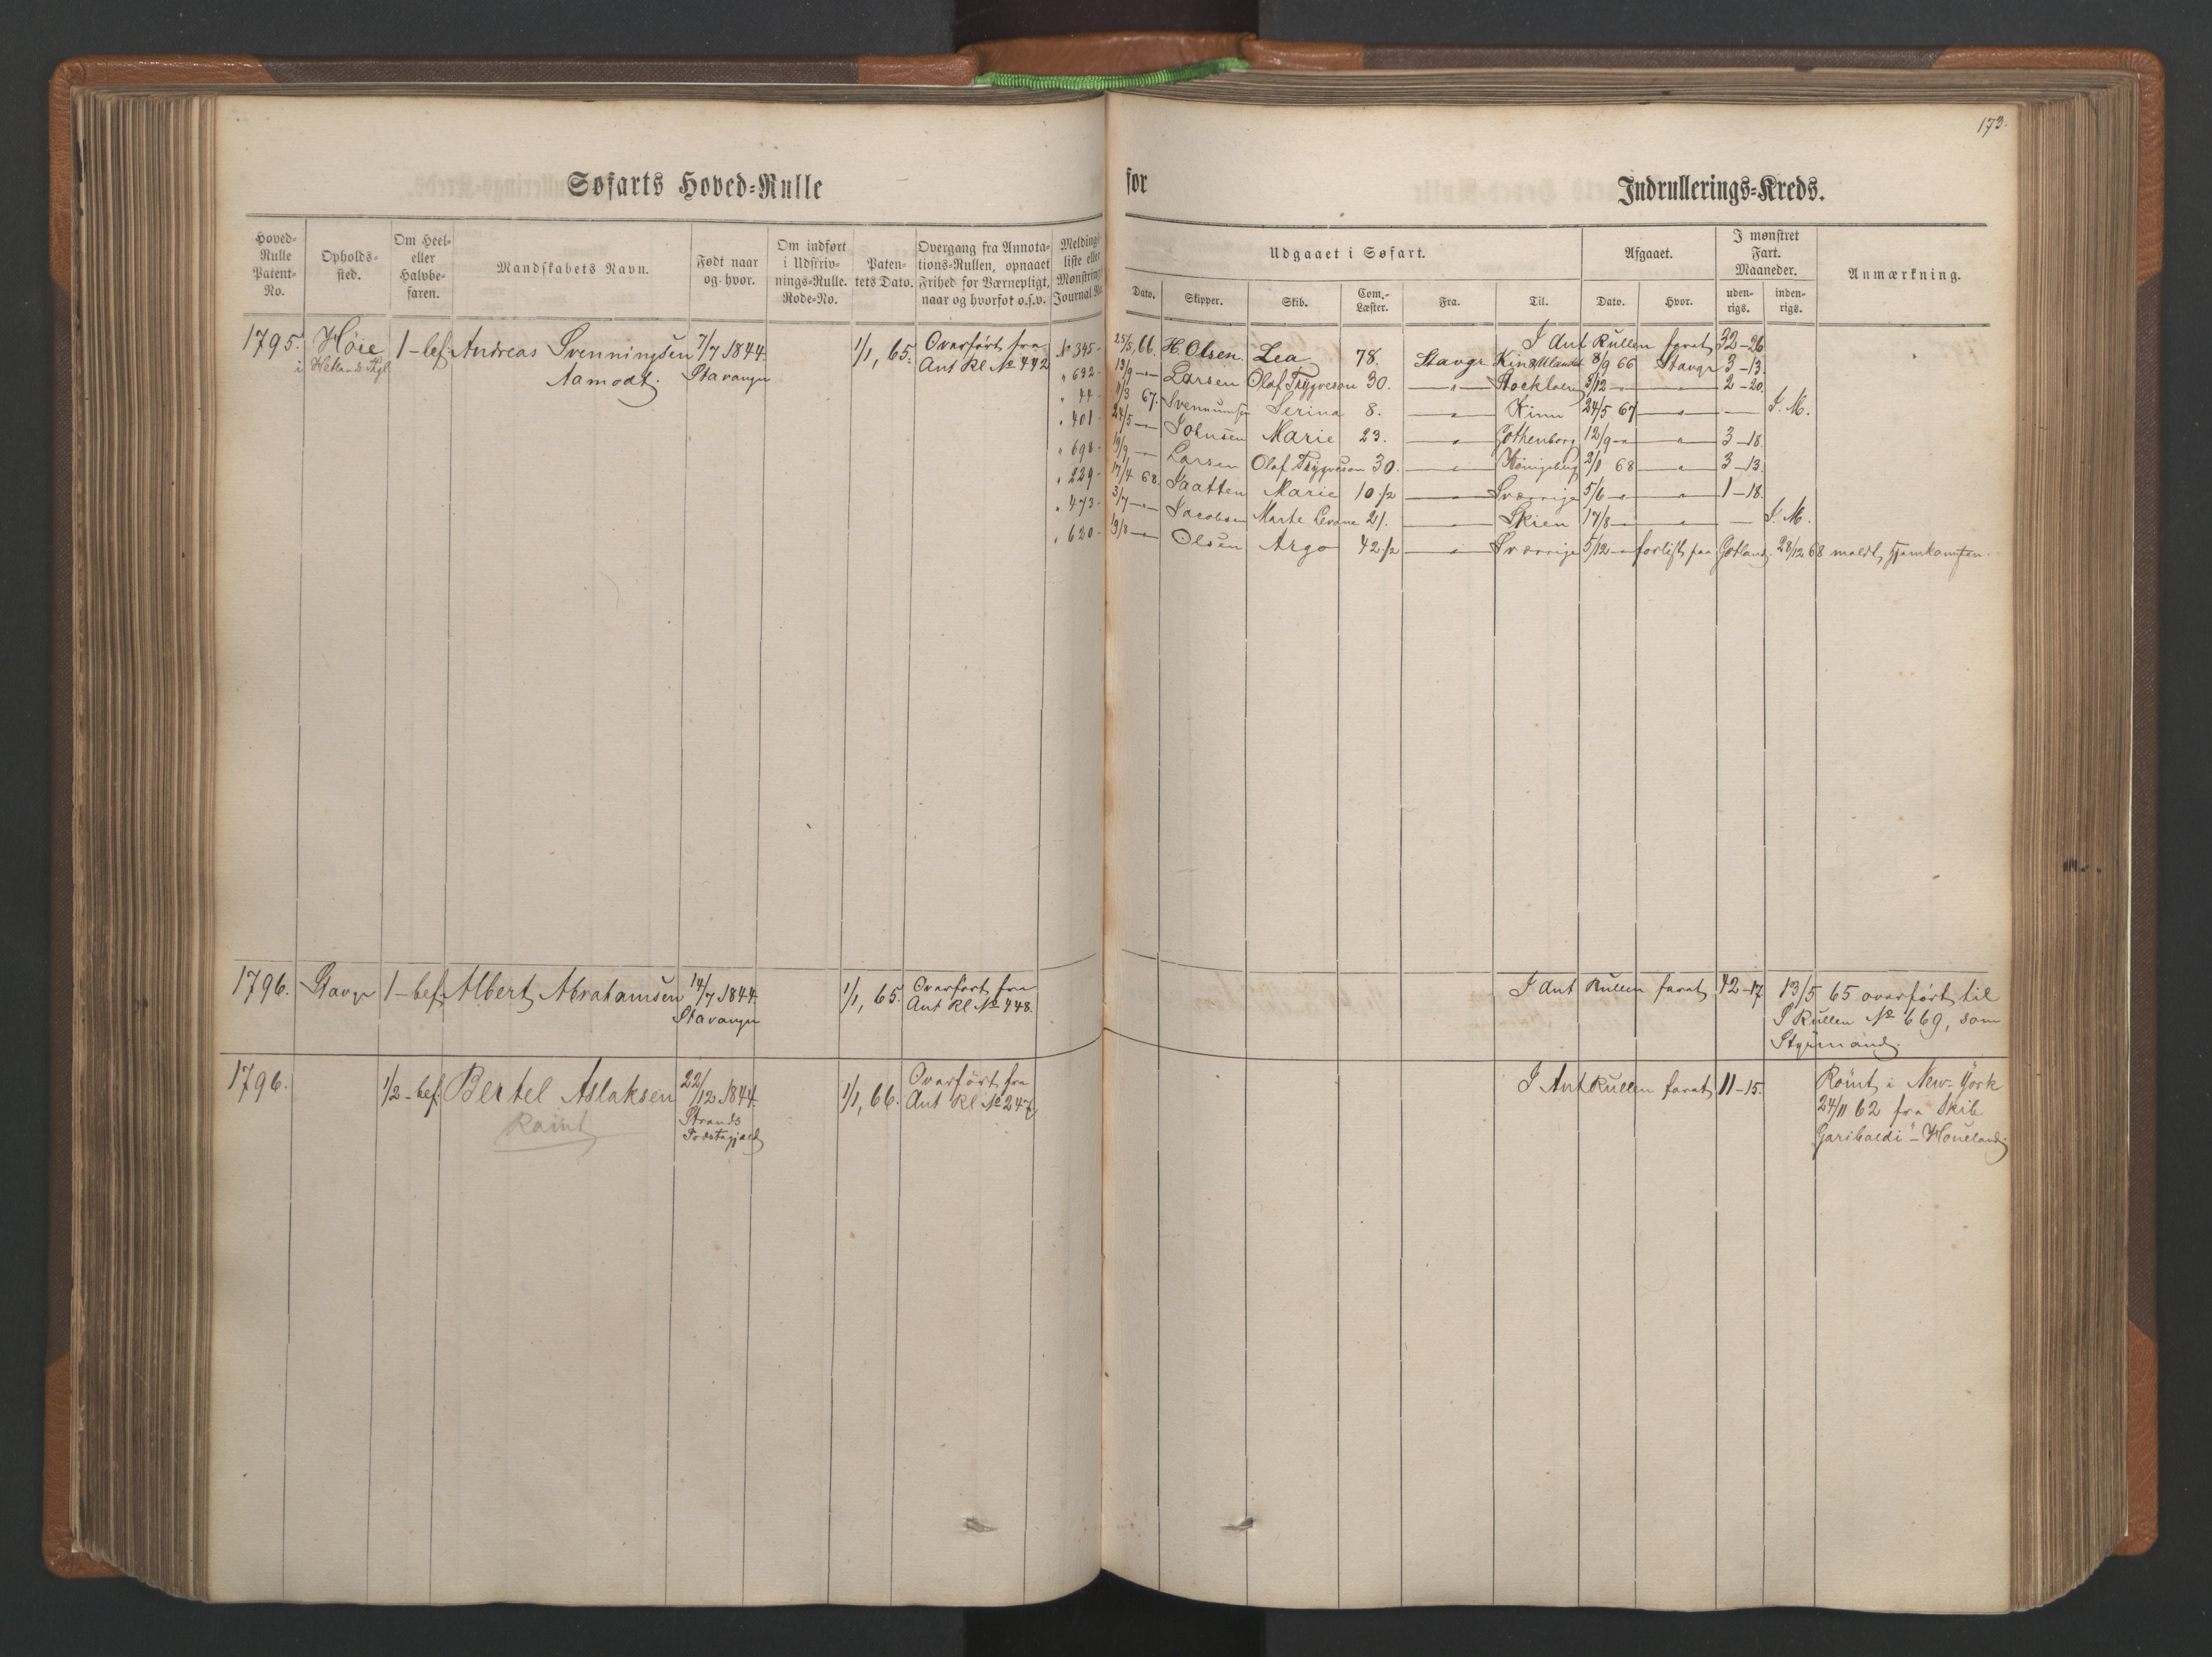 173.
Søfarts Hoved-Rulle for Indrullerings-Kreds.
Hoved-Rulle Patent-No.
Opholds-sted.
Om Heel- eller Halvbe-faren.
Mandskabets Navn.
Født naar og hvor.
Om indført i Udskriv-nings-Rulle. Rode-No.
Paten-tets Dato.
Overgang fra Annota-tions-Rullen, opnaaet Frihed for Værnepligt, naar og hvorfor o.s.v.
Meldings-liste eller Mønstrings Journal No.
Udgaaet i Søfart.
Dato. Skipper. Skib. Com.-Læster. Fra. Til.
Afgaaet.
Dato. Hvor.
I mønstret Fart. Maaneder.
uden-rigs. inden-rigs.
Anmærkning.
1795. Høie 1-bef. Andreas Svenningsen 7/7 1844. 1/1, 65. Overført fra
i Hetlands Pgl. Aamodt. Stavanger Ant Rl No 442
I Ant Rullen faret 32-26
No 345- 25/5 66. H. Olsen. Lea 78. Stavgr 8/9 66 Stavgr 3-13.
" 692- 13/9 -"- Larsen Olaf Trygveson 30. -"- Stockholm 3/12 -"- -"- 2-20.
" 44- 11/3 67. Svennumsen Serina 8. -"- Kinn 24/5 67 -"- — I. M.
" 401- 24/5 -"- Johnsen Marie 23. -"- Gothenborg 12/9 -"- -"- 3-18.
" 698- 19/9 -"- Larsen Olaf Trygveson 30. -"- Königsberg 2/1 68 -"- 3-13.
" 229- 17/4 68. Saatten Marie 10 1/2 -"- Sverrige 5/6 -"- -"- 1-18.
" 473- 3/7 -"- Jacobsen Marte 21. -"- Skien 17/8 -"- -"- — I. M.
" 620- 19/8 -"- Olsen Argo 42 1/2 -"- Sverrige 5/12 -"- forlist paa Gotland. 28/12 68 meldt hjemkomsten.
1796. Stavgr 1-bef. Albert Abrahamsen 14/7 1844. 1/1, 65. Overført fra
Stavanger Ant Rl No 448.
I Ant Rullen faret 42-17 13/5 65 overført til
S Rullen No 669, som
Styrmand.
1796. 1/2-bef. Bertel Aslaksen 22/12 1844. 1/1, 66. Overført fra
Rømt Strands Ant Rl No 247.
Præstegjæld
I Ant Rullen faret 11-15. Rømt i New-York
24/11 62 fra Skib
Garibaldi "- Houeland.